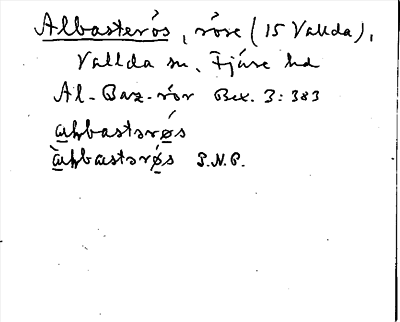 Albasterös, röse (15 Vallda),
Vallda sn. Fjäre hd
Al-Baz-rör Bex. 3:383
aḷbastərøs
àḷbæstərø̀s P.N.P.